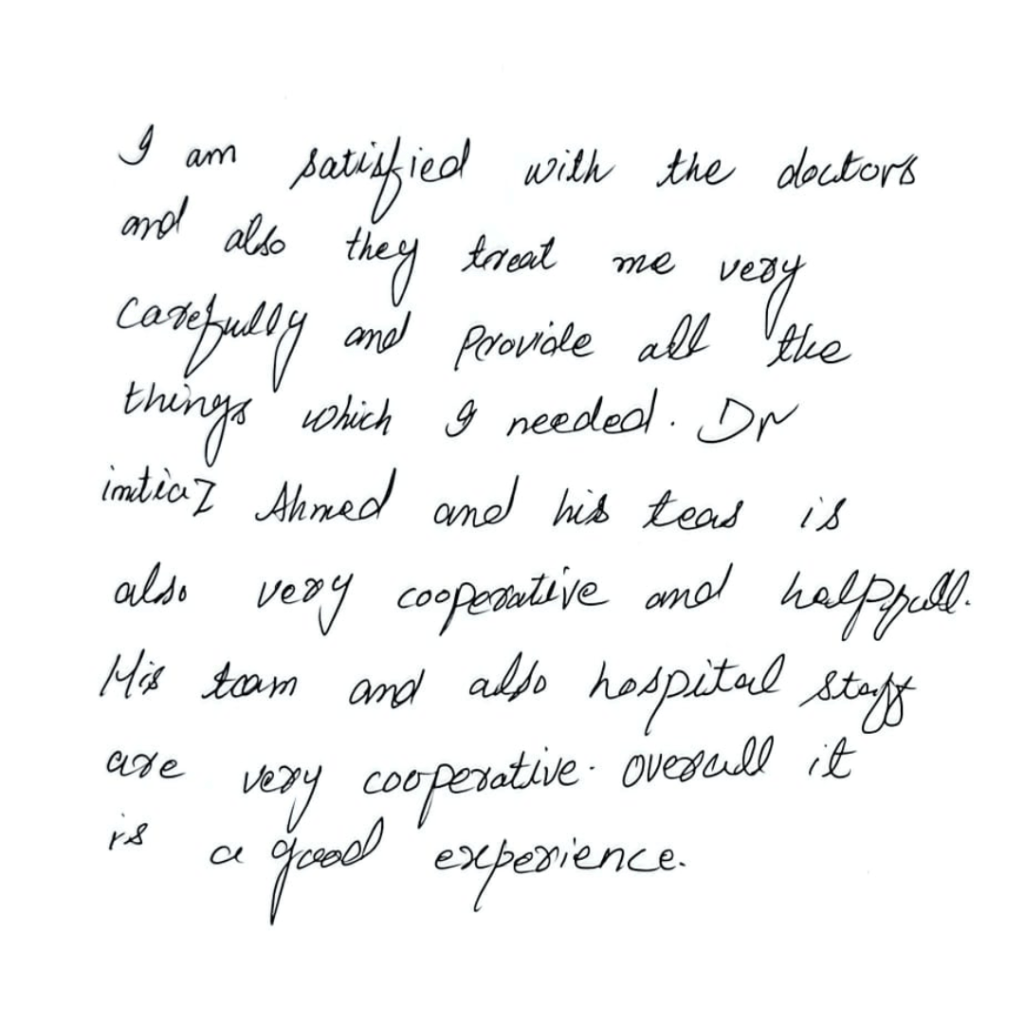 I am satisfied with the doctors
and also they treat me very
carefully and provide all the
things which I needed. Dr
imtiaz Ahmed and his teas is
also very cooperative and halpfull.
His team and also hospital staff
are very cooperative. overall it
is a good experience.